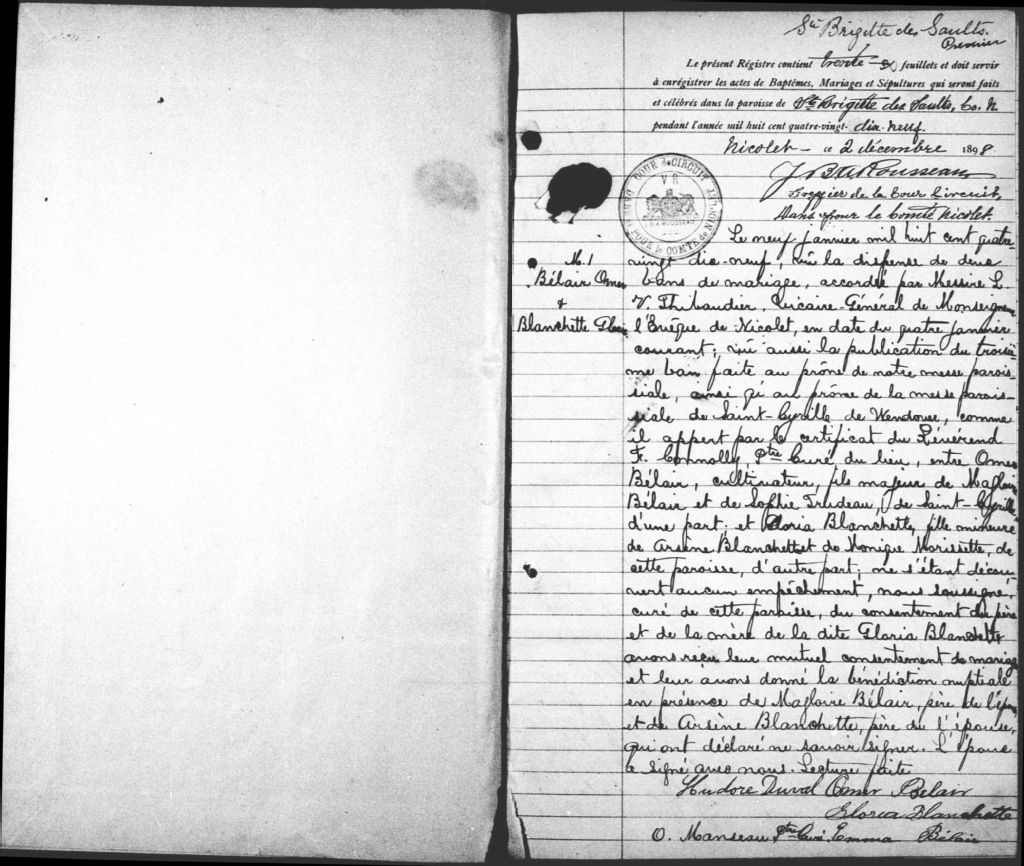 Ste Brigitte des Saults.
Premier
Le présent Régistre contient trente - 30 feuillets et doit servir
à enrégistrer les actes de Baptêmes, Mariages et Sépultures qui seront faits
et célébrés dans la paroisse de Ste Brigitte des Saults, Co. N.
pendant l'année mil huit cent quatre-vingt-dix-neuf.
Nicolet - ce 2 décembre 1898
J B A Rousseau
Greffier de la Cour Circuit,
dans & pour le comté Nicolet.
COUR de CIRCUIT
DANS ET POUR le COMTÉ de NICOLET
V R
M. 1
Bélair Omer
&
Blanchette Gloria
Le neuf janvier mil huit cent quatre-
vingt dix-neuf, vu la dispense de deux
bans de mariage, accordée par Messire L.
V. Thibaudier, Vicaire-Général de Monseigneur
l'Evêque de Nicolet, en date du quatre janvier
courant; vu aussi la publication du troisiè-
me ban faite au prône de notre messe parois-
siale, ainsi qu'au prône de la messe parois-
siale de Saint-Cyrille de Wendover, comme
il appert par le certificat du Révérend
F. Connolly, Ptre Curé du lieu, entre Omer
Bélair, cultivateur, fils majeur de Magloire
Bélair et de Sophie Trudeau, de Saint-Cyrille
d'une part; et Gloria Blanchette, fille mineure
de Arsène Blanchette et de Monique Morissette, de
cette paroisse, d'autre part; ne s'étant décou-
vert aucun empêchement, nous soussigné,
curé de cette paroisse, du consentement du père
et de la mère de la dite Gloria Blanchette
avons reçu leur mutuel consentement de mariage
et leur avons donné la bénédiction nuptiale
en présence de Magloire Bélair, père de l'époux
et de Arsène Blanchette, père de l'épouse,
qui ont déclaré ne savoir signer. L'épouse
a signé avec nous. Lecture faite
Duval Omer Belair
Gloria Blanchette
O. Manseau Ptre Curé. Emma Bélair